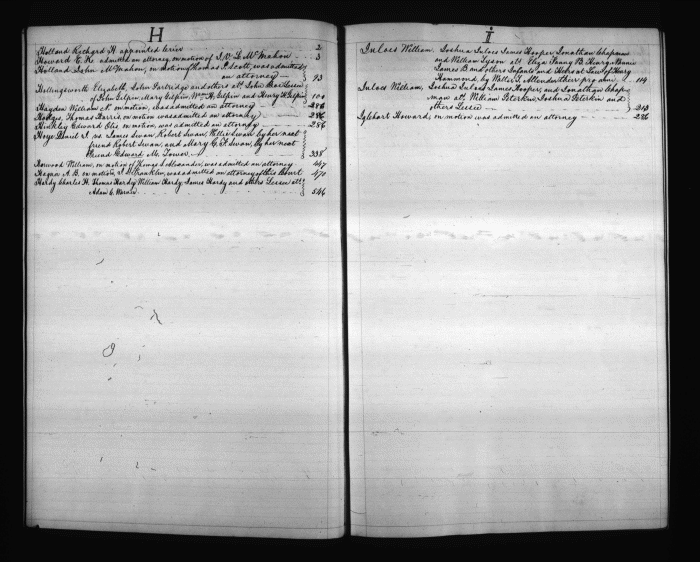 H
Holland Richard H appointed Crier 2
Howard C. H. admitted an attorney, on motion of J. V. L. McMahon 3
Holland John McMahon, on motion Thomas P. Scott, was admitted
an attorney 93
Hollingsworth Elizabeth, John Partridge and others als. John
of John Gilpin, Mary Gilpin, Wm H. Gilpin and Henry H. Gilpin 100
Hayden William on motion, was admitted an attorney 286
Hodges, Thomas Harris, on motion was admitted an attorney 286
Hinkley Edward Otis on motion, was admitted an attorney 286
Hoye Daniel vs James Swan, Robert Swan, Swan by her next
friend Robert Swan, and Mary G. F. Swan, by her next
friend Edward M. 338
Horwood William, on motion of Thomas S. Alexander, was admitted an attorney 447
Hagan A. B. on motion, Franklin, was admitted an attorney of this Court 470
Hardy Charles H. Thomas Hardy William Hardy, James Hardy and others Lessee als.
Adam C. 546
I
Inloes William, Joshua Inloes James Hooper Jonathan Chapman
and William Tyson als Eliza Fanny B. George
James B and others Infants and Heirs at Law of Henry
Hammond, by their pro ami 114
Inloes William, Joshua Inloes James Hooper, and Jonathan Chap
man als. William Peterkin Joshua Peterkin and
others Lessee 213
Iglehart Howard, on motion was admitted an attorney 286